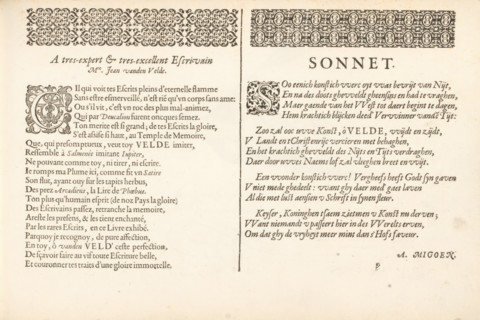 A tres-expert & tres-excellent Escrivain
Mr. Jean vanden Velde.
Qui voit tes Escrits pleins d'eternelle flamme
Sans estre esmerveillé, n'est rié qu'vn corps sans ame:
Ou s'il vit, c'est vn roc des plus mal-animez,
Qui par Deucalion furent oncques semez.
Ton merite est si grand, de tes Escrits la gloire,
S'est assise si haut, au Temple de Memoire,
Que, qui presomptueux, veut toy VELDE imiter,
Ressemble à Salmonée imitant Jupiter,
Ne pouvant comme toy, ni tirer, ni escrire.
Je romps ma Plume ici, comme fit vn Satire
Son flut, ayant ouy sur les tapits herbus,
Des prez Arcadiens, la Lire de Phœbus.
Ton plus qu'humain esprit (de nos Pays la gloire)
Des Escrivains passez, retranche la memoire,
Areste les presens, & les tient enchanté,
Par les rares Escrits, en ce Livre exhibé.
Parquoy je recognoy, de pure affection,
En toy, ô vanden VELD' ceste perfection,
De sçavoir faire au vif toute Escriture belle,
Et couronner tes traits d'une gloire immortelle.
SONNET.
Soo eenich konstich werc oyt was bevrijt van Nijt,
En na des doots ghevveldt gheensins en had te vraghen,
Maer gaende van het VVest tot daert begint te dagen,
Hem krachtich blijcken deed' Vervvinner vanden Tijt:
Zoo zal ooc uwe Konst, ô VELDE, vvijdt en zijdt,
V Landt en t'Christenrijc vercieren met behaghen,
En het krachtich ghevveldt des Nijts en Tijts verdraghen,
Daer door uvves Naems lof zal vlieghen breet en vvijt.
Een vvonder konstich vverc! Vergheefs heeft Godt sijn gaven
V niet mede ghedeelt: vvant ghy daer med gaet laven
Al die met lust aensien u Schrift in sijnen fleur.
Keyser, Koninghen t'saem zietmen v Konst nu derven;
VVant niemand v passeert hier in des VVerelts erven,
Om dat ghy de vryheyt meer mint dan s'Hofs faveur.
A. MIGOEN.
P